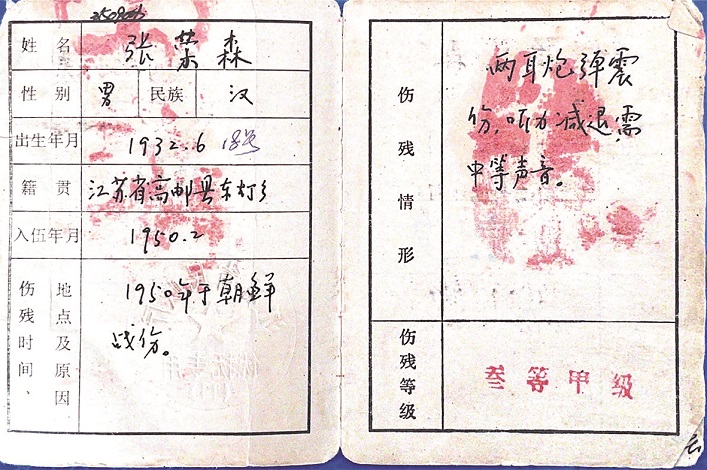 姓名 张荣森
性别 男 民族 汉
出生年月 1932.6
籍贯 江苏省高邮县东灯乡
入伍年月 1950.2
伤残时间、地点及原因
1950年于朝鲜
战伤。
伤残情形
两耳炮弹震
伤,听力减退,需
中等声音。
伤残等级
叁等甲级